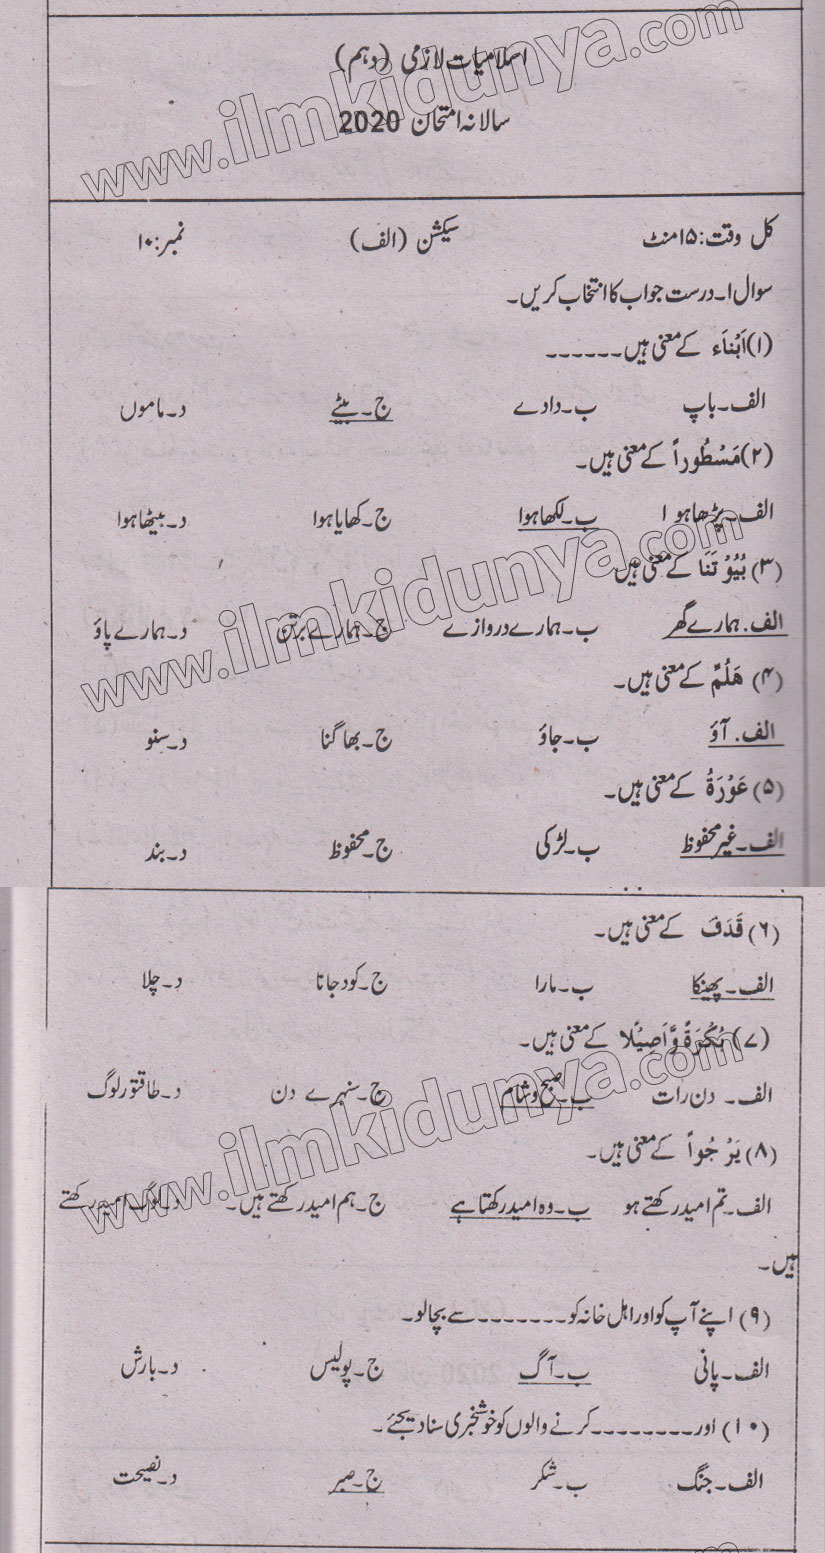 اسلامیات لازمی (دہم)
سالانہ امتحان 2020
کل وقت:۱۵منٹ سیکشن (الف) نمبر:۱۰
سوال۱۔درست جواب کا انتخاب کریں۔
(۱)اَبْنَاَء کے معنی ہیں۔۔۔۔۔۔
الف۔باپ ب۔دادے ج۔بیٹے د۔ماموں
(۲)مَسْطُوراً کے معنی ہیں۔
الف۔پڑھاہوا ب۔لکھاہوا ج۔کھایاہوا د۔بیٹھاہوا
(۳) بُیُوْتَنَا کے معنی ہیں
الف.ہمارے گھر ب۔ہمارے دروازے ج۔ہمارے برتن د۔ہمارے پاؤ
(۴) ھَلُمَّ کے معنی ہیں۔
الف.آؤ ب۔جاؤ ج۔بھاگنا د۔سنو
(۵) عَوْرَۃُ کے معنی ہیں۔
الف۔غیر محفوظ ب۔لڑکی ج۔محفوظ د۔بند
(۶) قَدَفَ کے معنی ہیں۔
الف۔پھینکا ب۔مارا ج۔کود جانا د۔چلا
(۷) بُکْرَۃً وَّاَصِیْلًا کے معنی ہیں۔
الف۔ دن رات ب۔صبح وشام ج۔سنہرے دن د۔طاقتور لوگ
(۸) یَرْجُواً کے معنی ہیں۔
الف۔تم امید رکھتے ہو ب۔وہ امید رکھتا ہے ج۔ہم امید رکھتے ہیں۔ د۔لوگ امید رکھتے
ہیں۔
(۹) اپنے آپ کو اور اھل خانہ کو۔۔۔۔۔۔۔۔سے بچالو۔
الف۔پانی ب۔آگ ج۔پولیس د۔بارش
(۱۰) اور۔۔۔۔۔۔۔۔۔کرنے والوں کو خوشخبری سنا دیجئے۔
الف۔جنگ ب۔شکر ج۔صبر د۔نصیحت
www.ilmkidunya.com
www.ilmkidunya.com
www.ilmkidunya.com